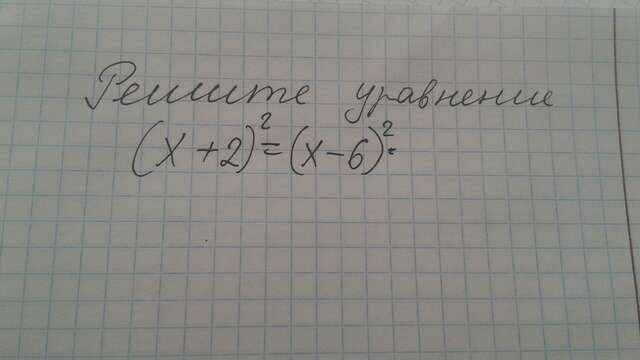 Решите уравнение
(x+2)²=(x-6)².